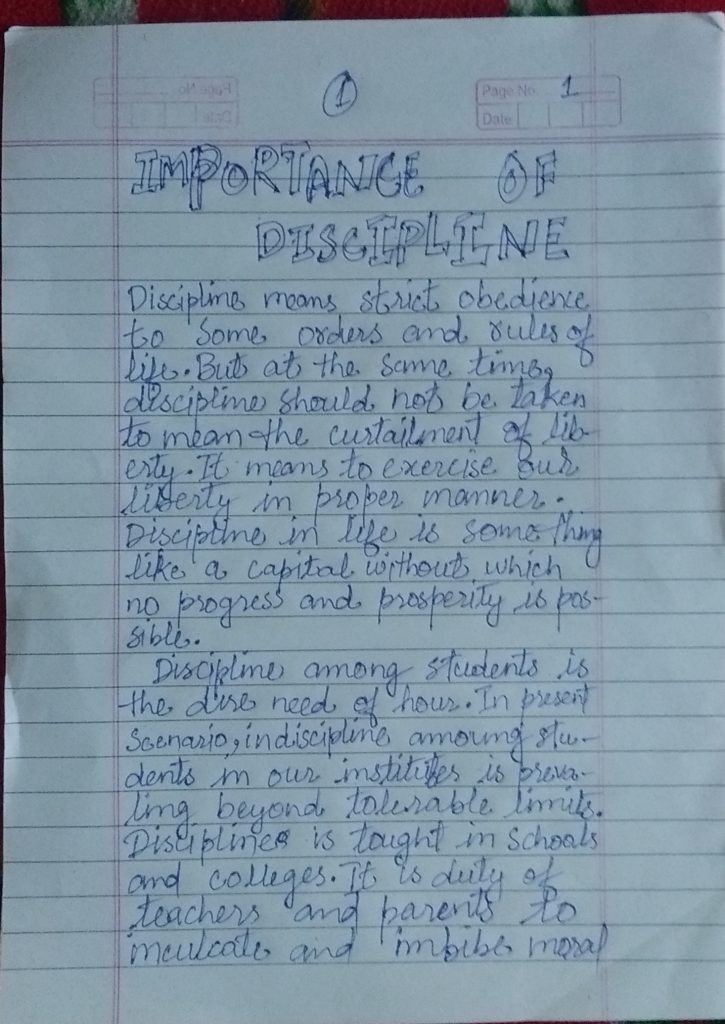 1
Page No. 1
Date
IMPORTANCE OF
DISCIPLINE
Discipline means strict obedience
to some orders and rules of
life. But at the same time,
discipline should not be taken
to mean the curtailment of lib-
erty. It means to exercise our
liberty in proper manner.
Discipline in life is something
like a capital without which
no progress and prosperity is pos-
sible.
Discipline among students is
the dire need of hour. In present
Scenario, indiscipline amoung stu-
dents in our institutes is preva-
ling beyond tolerable limits.
Discipline is taught in schools
and colleges. It is duty of
teachers and parents to
inculcate and imbibe moral